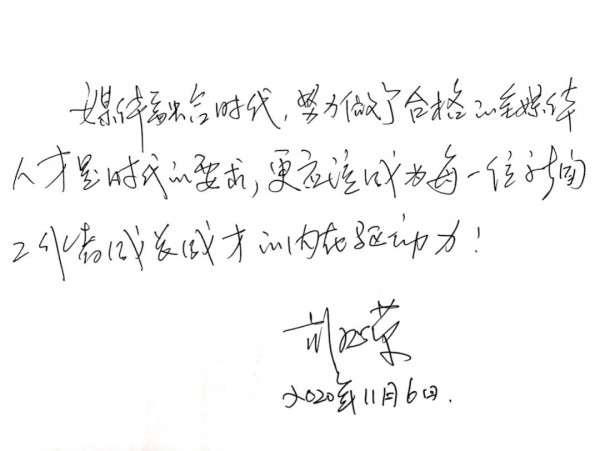 媒体融合时代，努力做了合格的全媒体
人才是时代的要求，更应该成为每一位新闻
工作者成长成才的内在驱动力！
2020年11月6日.